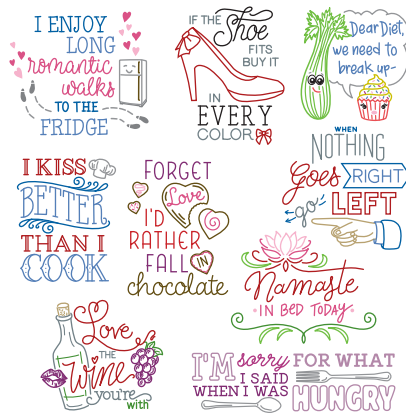 I ENJOY
LONG
romantic
walks
TO THE
FRIDGE
IF THE Shoe
FITS
BUY IT
IN
EVERY
COLOR
Dear Diet,
we need to
break up-
I KISS
BETTER
THAN I
COOK
FORGET
Love
I'D
RATHER
FALL IN
chocolate
WHEN
NOTHING
Goes RIGHT
go LEFT
Namaste
IN BED TODAY
Love
THE
Wine
you're
with
I'M sorry FOR WHAT
I SAID
WHEN I WAS HUNGRY